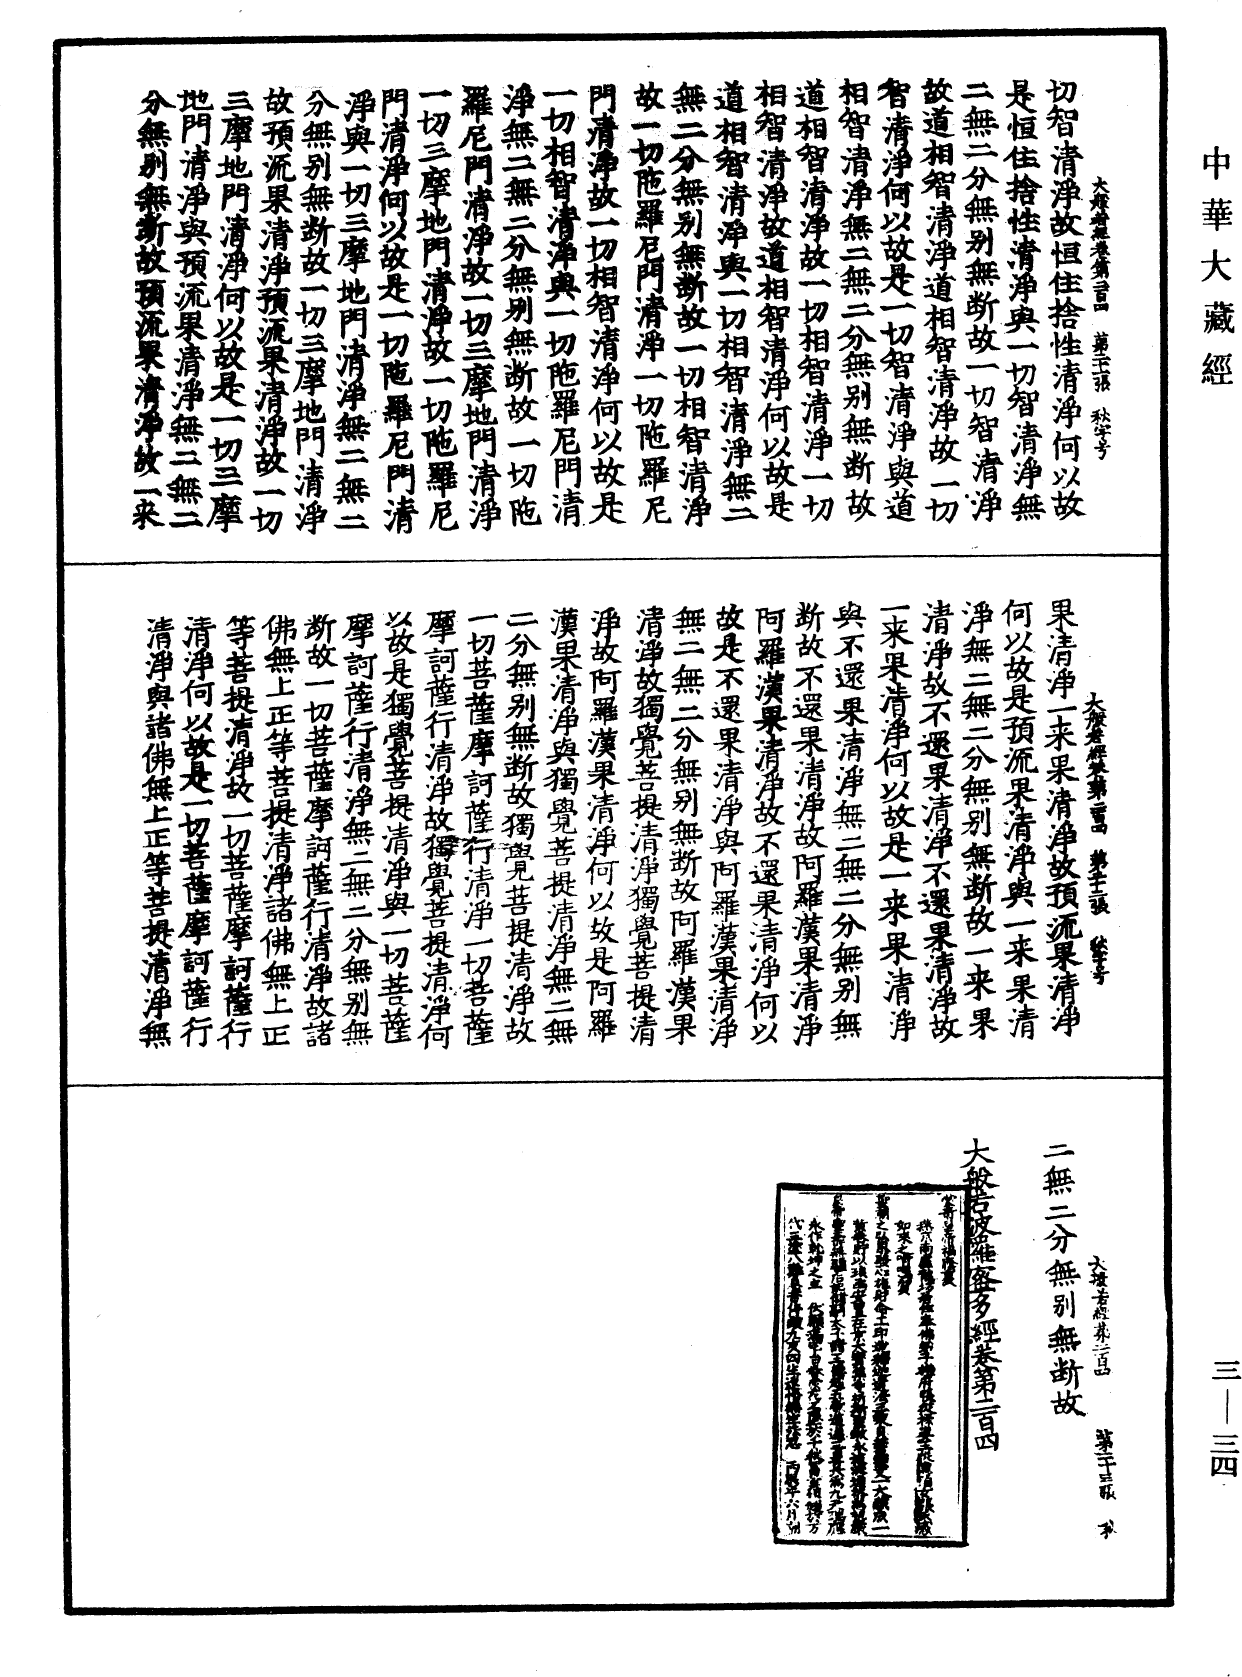 中華大藏經
大般若經卷第二百四 第二十一張 秋字号
切智清淨故恒住捨性清淨何以故
是恒住捨性清淨與一切智清淨無
二無二分無别無断故一切智清淨
故道相智清淨道相智清淨故一切
智清淨何以故是一切智清淨與道
相智清淨無二無二分無别無断故
道相智清淨故一切相智清淨一切
相智清淨故道相智清淨何以故是
道相智清淨與一切相智清淨無二
無二分無别無断故一切相智清淨
故一切陁羅尼門清淨一切陁羅尼
門清淨故一切相智清淨何以故是
一切相智清淨與一切陁羅尼門清
淨無二無二分無别無断故一切陁
羅尼門清淨故一切三摩地門清淨
一切三摩地門清淨故一切陁羅尼
門清淨何以故是一切陁羅尼門清
淨與一切三摩地門清淨無二無二
分無别無断故一切三摩地門清淨
故預流果清淨預流果清淨故一切
三摩地門清淨何以故是一切三摩
地門清淨與預流果清淨無二無二
分無别無断故預流果清淨故一来
大般若經卷第二百四 第二十二張 秋字号
果清淨一来果清淨故預流果清淨
何以故是預流果清淨與一来果清
淨無二無二分無别無断故一来果
清淨故不還果清淨不還果清淨故
一来果清淨何以故是一来果清淨
與不還果清淨無二無二分無别無
断故不還果清淨故阿羅漢果清淨
阿羅漢果清淨故不還果清淨何以
故是不還果清淨與阿羅漢果清淨
無二無二分無别無断故阿羅漢果
清淨故獨覺菩提清淨獨覺菩提清
淨故阿羅漢果清淨何以故是阿羅
漢果清淨與獨覺菩提清淨無二無
二分無别無断故獨覺菩提清淨故
一切菩薩摩訶薩行清淨一切菩薩
摩訶薩行清淨故獨覺菩提清淨何
以故是獨覺菩提清淨與一切菩薩
摩訶薩行清淨無二無二分無别無
断故一切菩薩摩訶薩行清淨故諸
佛無上正等菩提清淨諸佛無上正
等菩提清淨故一切菩薩摩訶薩行
清淨何以故是一切菩薩摩訶薩行
清淨與諸佛無上正等菩提清淨無
大般若經卷第二百四 第二十三張 秋
二無二分無别無断故
大般若波羅蜜多經卷第二百四
三—三四